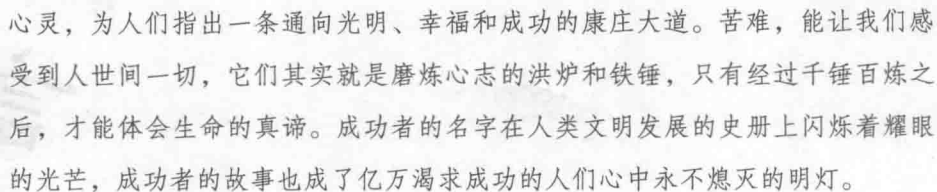 心灵，为人们指出一条通向光明、幸福和成功的康庄大道。苦难，能让我们感
受到人世间一切，它们其实就是磨炼心志的洪炉和铁锤，只有经过千锤百炼之
后，才能体会生命的真谛。成功者的名字在人类文明发展的史册上闪烁着耀眼
的光芒，成功者的故事也成了亿万渴求成功的人们心中永不熄灭的明灯。